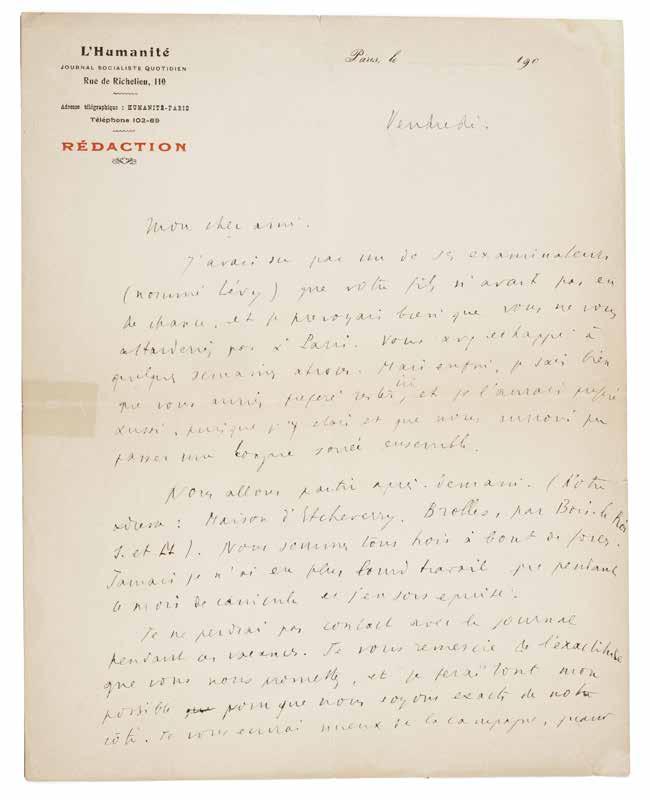 L'Humanité
JOURNAL SOCIALISTE QUOTIDIEN
Rue de Richelieu, 110
Adresse télégraphique : HUMANITÉ-PARIS
Téléphone 102-69
RÉDACTION
Paris, le 190
Vendredi.
Mon cher ami.
J'avais su par un de ses examinateurs
(nommé Lévy) que votre fils n'avait pas eu
de chance, et je prévoyais bien que vous ne vous
attarderiez pas à Paris. Vous avez échappé à
quelques semaines atroces. Mais enfin, je sais bien
que vous auriez préféré rester ici, et je l'aurais préféré
aussi, puisque j'y étais et que nous aurions pu
passer une longue soirée ensemble.
Nous allons partir après-demain. (Notre
adresse : Maison d'Etcheverry. Brolles, par Bois-le-Roi
S. et M). Nous sommes tous trois à bout de forces.
Jamais je n'ai eu plus lourd travail que pendant
ce mois de canicule et j'en sors épuisé.
Je ne perdrai pas contact avec le journal
pendant ces vacances. Je vous remercie de l'exactitude
que vous nous promettez, et je ferai tout mon
possible pour que nous soyons exacts de notre
côté. Je vous écrirai mieux de la campagne, quand